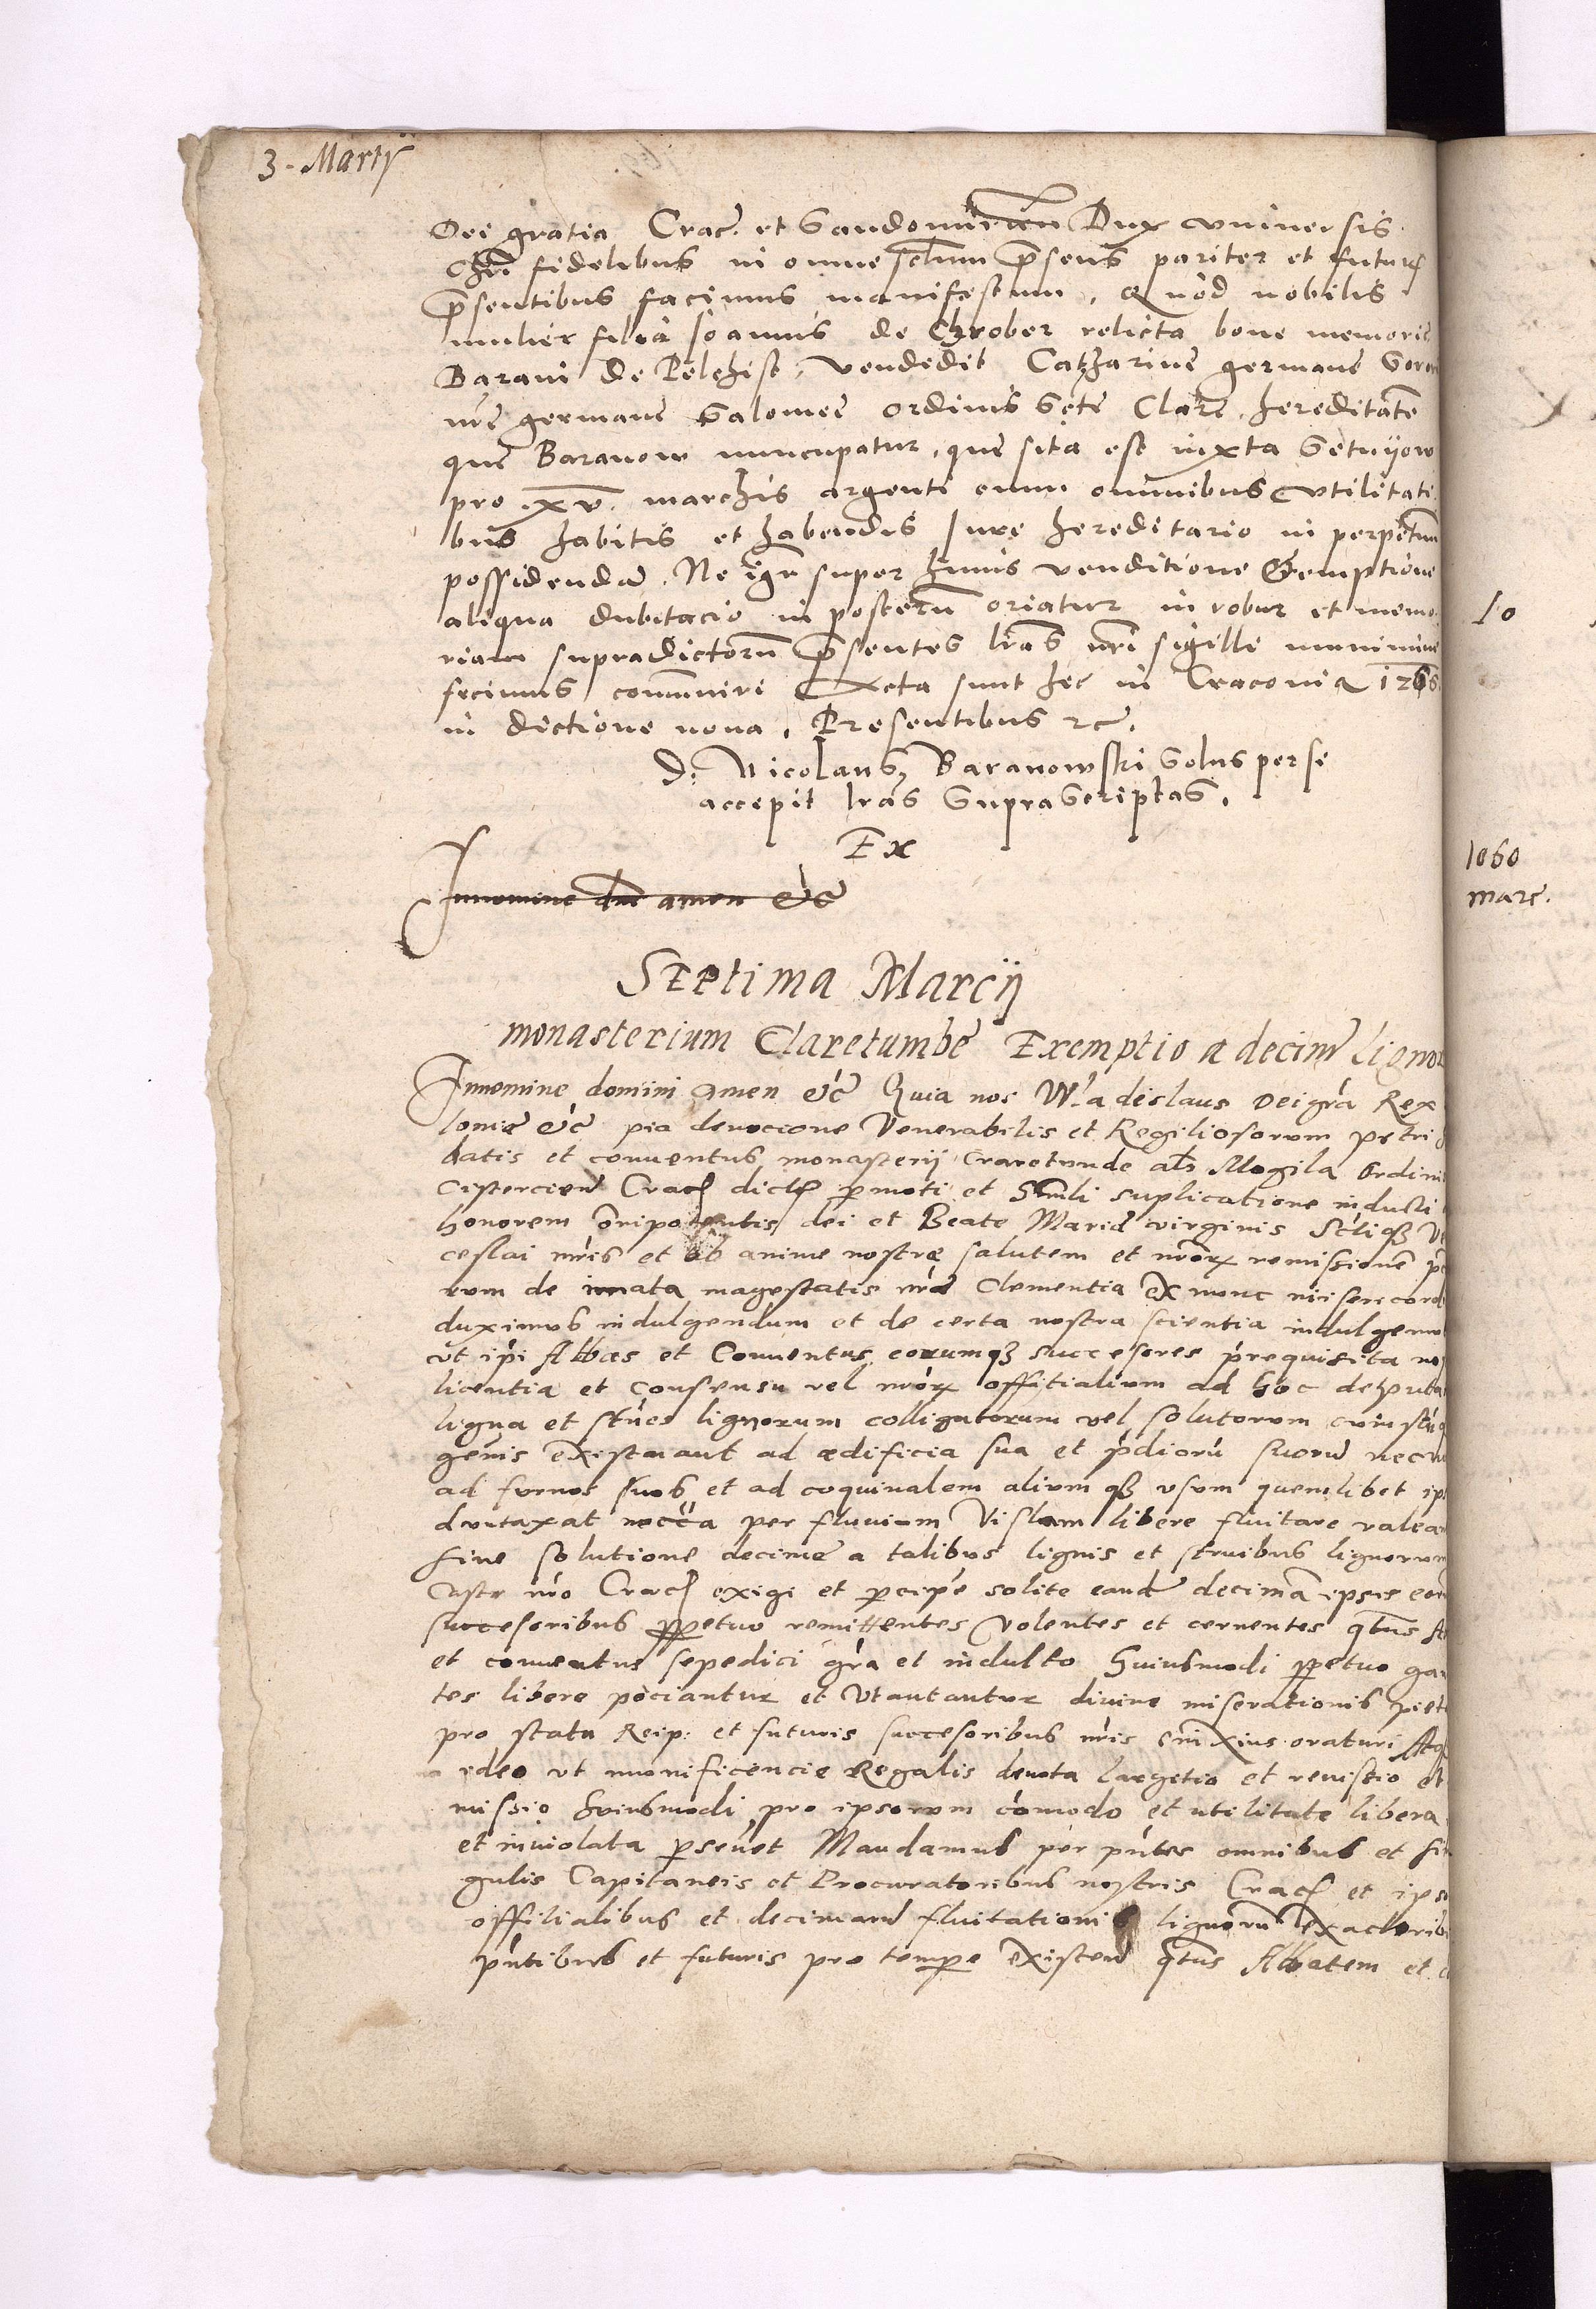 3. Martÿ
Dei gratia Crac̄. et Sandomirien̄ Dux vniuersis
Chrī fidelibus in omne sclum p̄sens pariter et futur̄
p̄sentibus facimus manifestum, Quòd nobilis
mulier filia Joannis de Chrober relicta bone memorie
Barani de Pelchist, vendedit Catharine germane Soror
nr̄e germane Salomee ordinis Sc̄te Clare, hereditatē
que Baranow nuncupatur, que sita est iuxta
pro .xv. marchis argenti cum omnibus vtilitati
bus habitis et habendis Jure hereditario in perpetuū
possidendā. Ne igr̄ super huius venditione & emptione
aliqua dubitacio in posterū oriatur in robur et memo
riam supradictorū p̄sentes lr̄as nr̄i sigilli munimine
fecimus com̄uniri Acta sunt hec in Cracouia
in dictione nona. Presentibus &c.
D. Nicolaus Baranowski Solus per se
accepit lr̄as SupraScriptas.
Ex
Innomine dni amen &c̄
SEptima Marcij
monasterium Claretumbe Exemptio a decim̄ Ligno
Innomine domini amen &c̄ Quia nos Wladislaus Dei gr̄a Rex
lonie &c̄ pia deuocione Venerabilis et Regiliosorum petri
batis et conuentus monasterij Craretumde als̄ Mogila Ordini
Cistercien̄ Crac̄ dict̄ p̄moti et Humli suplicatione inducti
honorem om̄ipotentis dei et Beate Marie virginis Sc̄tiqȝ Ve
ceslai mr̄is et ob anime nostræ salutem et nr̄or̄ remissionē
rum de innata magestatis nr̄e Clementia ex nunc misericord
duximus indulgendum et de certa nostra scientia indulgemu
vt ip̄i Abbas et Conuentus eorumqȝ succesores prequisita
licentia et consensu vel nr̄or̄ offitialium ad hoc deputa
ligna et strues lignorum colligatorum vel solutorum cuiuscu
gen̄is existant ad ædificia sua et p̄dioru suorū necnu
ad furnos suos et ad coquinalem alium qȝ vsum quemlibet ip
duntaxat per fluuium Vislam libere fluitare valean
sine solutione decime a talibus lignis et struibus lignorum
Castr̄ nr̄o Crac̄ exigi et p̄cipe solite eandē decimā ipsis eor
succesoribus p̄petuo remittentes Volentes et cernentes q̄tus
et conuentus sepedici gr̄a et indulto Huiusmodi p̄petuo ga
tes libere pociantur et Vtantantur diuine miserationis piet
pro statu Reip. et futuris succesoribus nr̄is enixius oraturi Atq
ideo vt munificencie Regalis deuota largitio et et
missio huiusmodi pro ipsorum comodo et utilitate libera
et inuiolata p̄seuet Mandamus per pn̄tes omnibus et sin
gulis Capitaneis et Procuratoribus nostris Crac̄ et ips
offitialibus et decimarū fluitationis lignorū Exactorib
pn̄tibus et futuris pro tempe existen̄ q̄tus Abbatem et
10
1060
marc.